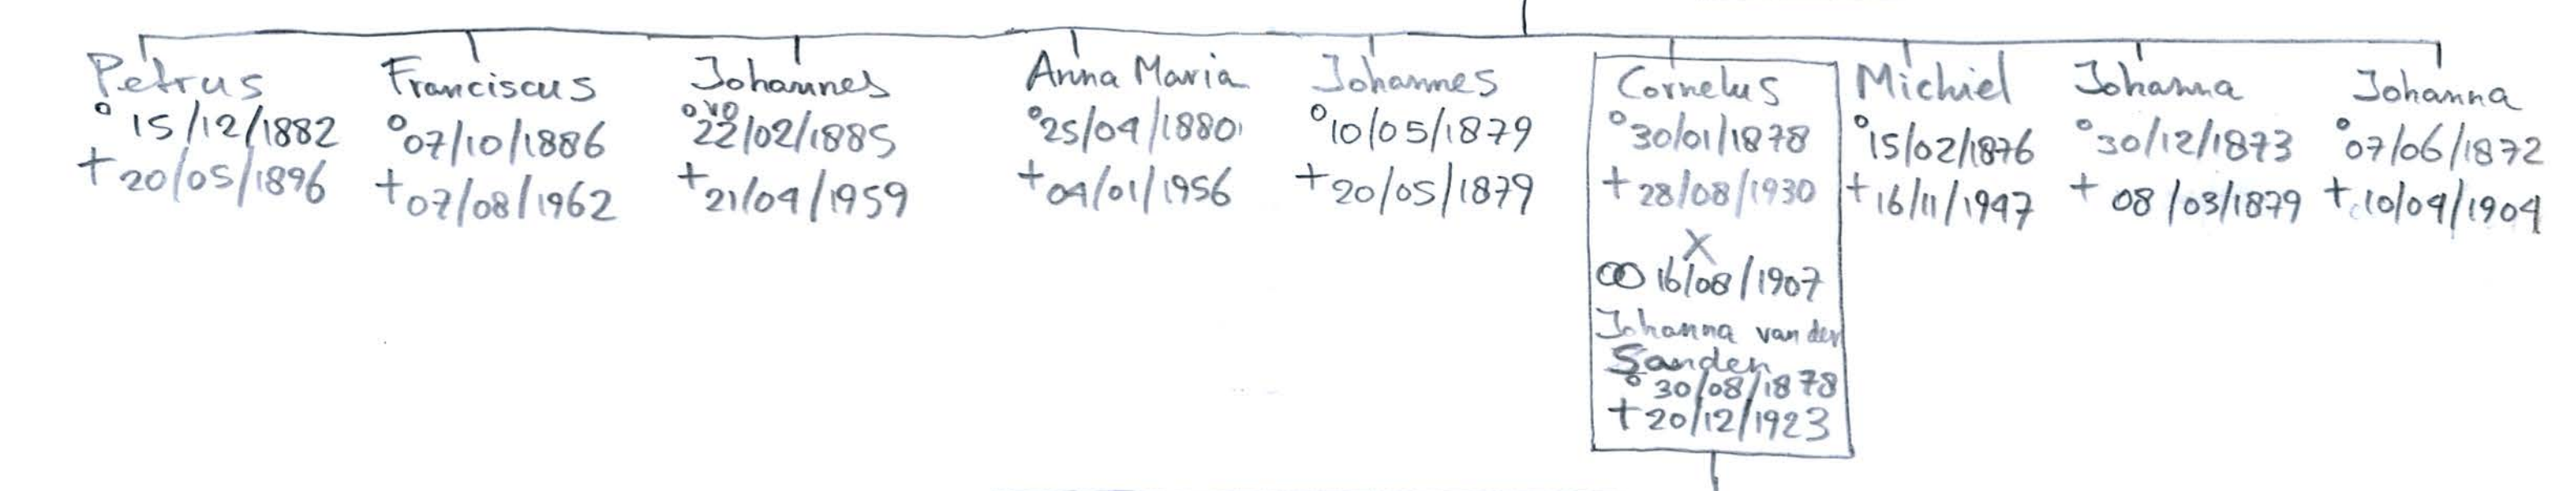 Petrus
° 15/12/1882
+ 20/05/1896
Franciscus
° 07/10/1886
+ 07/08/1962
Johannes
° 22/02/1885
+ 21/04/1959
Anna Maria
° 25/04/1880
+ 04/01/1956
Johannes
° 10/05/1879
+ 20/05/1879
Cornelus
° 30/01/1878
+ 28/08/1930
X
∞ 16/08/1907
Johanna van der
Sanden
° 30/08/1878
+ 20/12/1923
Michiel
° 15/02/1876
+ 16/11/1947
Johanna
° 30/12/1873
+ 08/03/1879
Johanna
° 07/06/1872
+ 10/04/1904